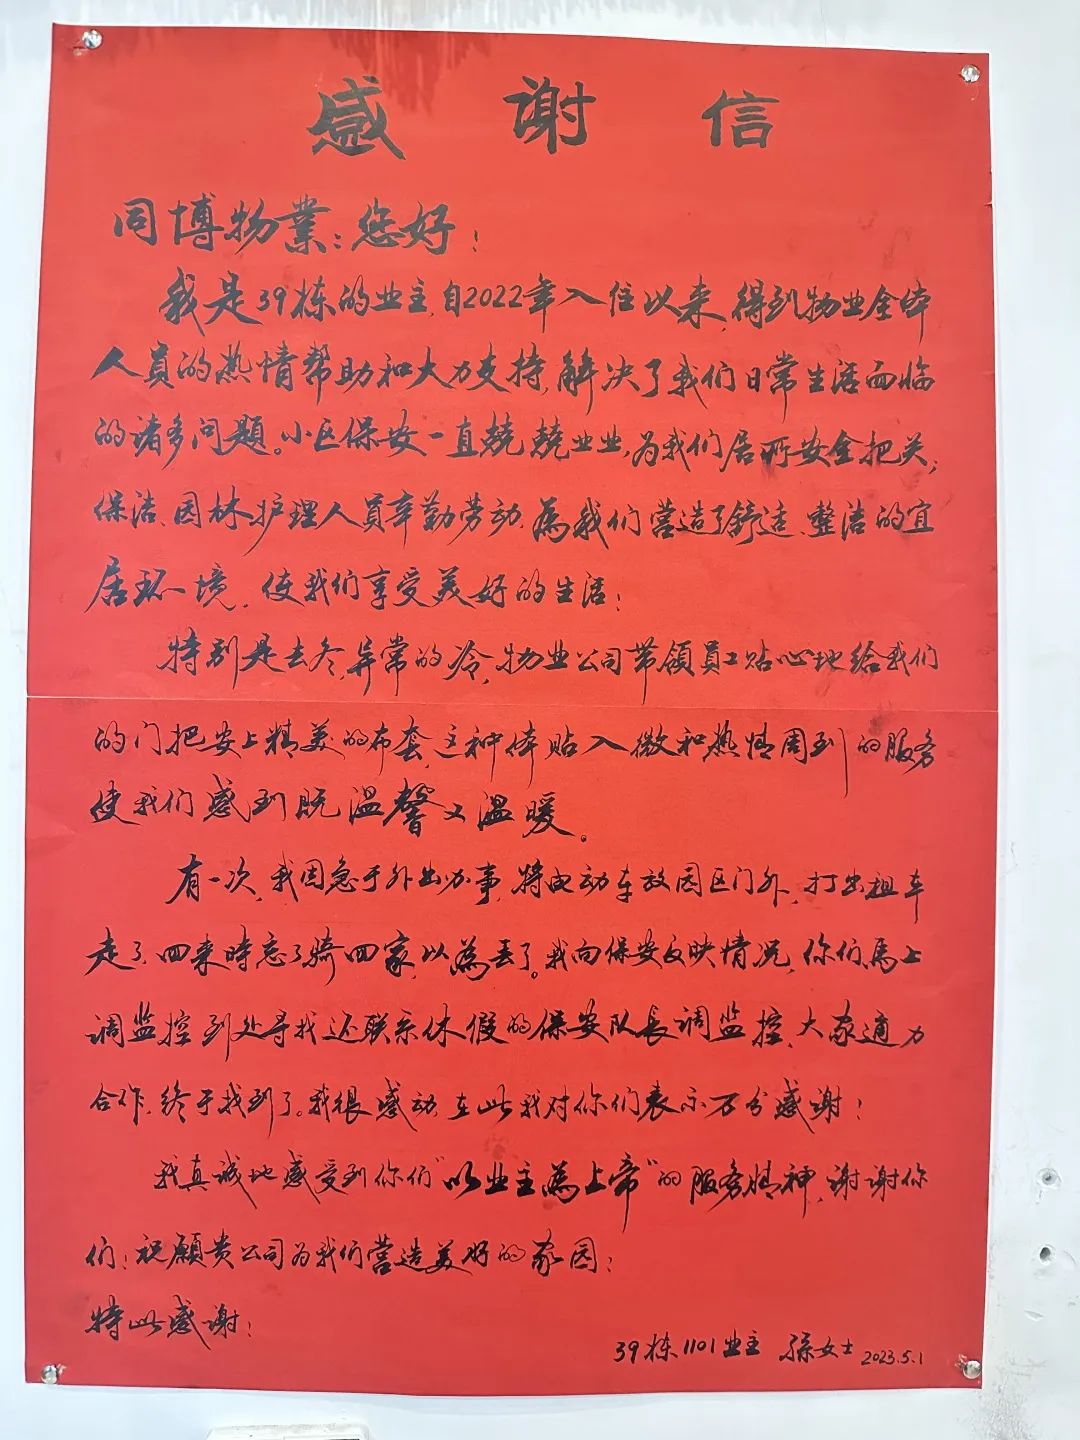 感谢信
同博物業：您好！
我是39栋的业主，自2022年入住以来，得到物业全体
人員的热情帮助和大力支持，解决了我们日常生活面临
的诸多问題。小区保安一直兢兢业业，为我们居所安全把关；
保洁、园林护理人員辛勤劳动，為我们营造了舒适、整洁的宜
居环境，使我们享受美好的生活！
特别是去冬，异常的冷，物业公司带領員工贴心地给我们
的门把安上精美的布套，这种体贴入微和热情周到的服务
使我们感到既温馨又温暖。
有一次，我因急于外出办事，将电动车放园区门外，打出租车
走了，回来時忘了骑回家，以為丢了。我向保安反映情况，你们馬上
调监控到处寻找，还联系休假的保安队長调监控，大家通力
合作，终于找到了。我很感动，在此我对你们表示万分感谢！
我真诚地感受到你们“以业主為上帝”的服务精神，谢谢你
们！祝願贵公司为我们营造美好的家园！
特此感谢！
39栋1101业主 孫女士 2023.5.1